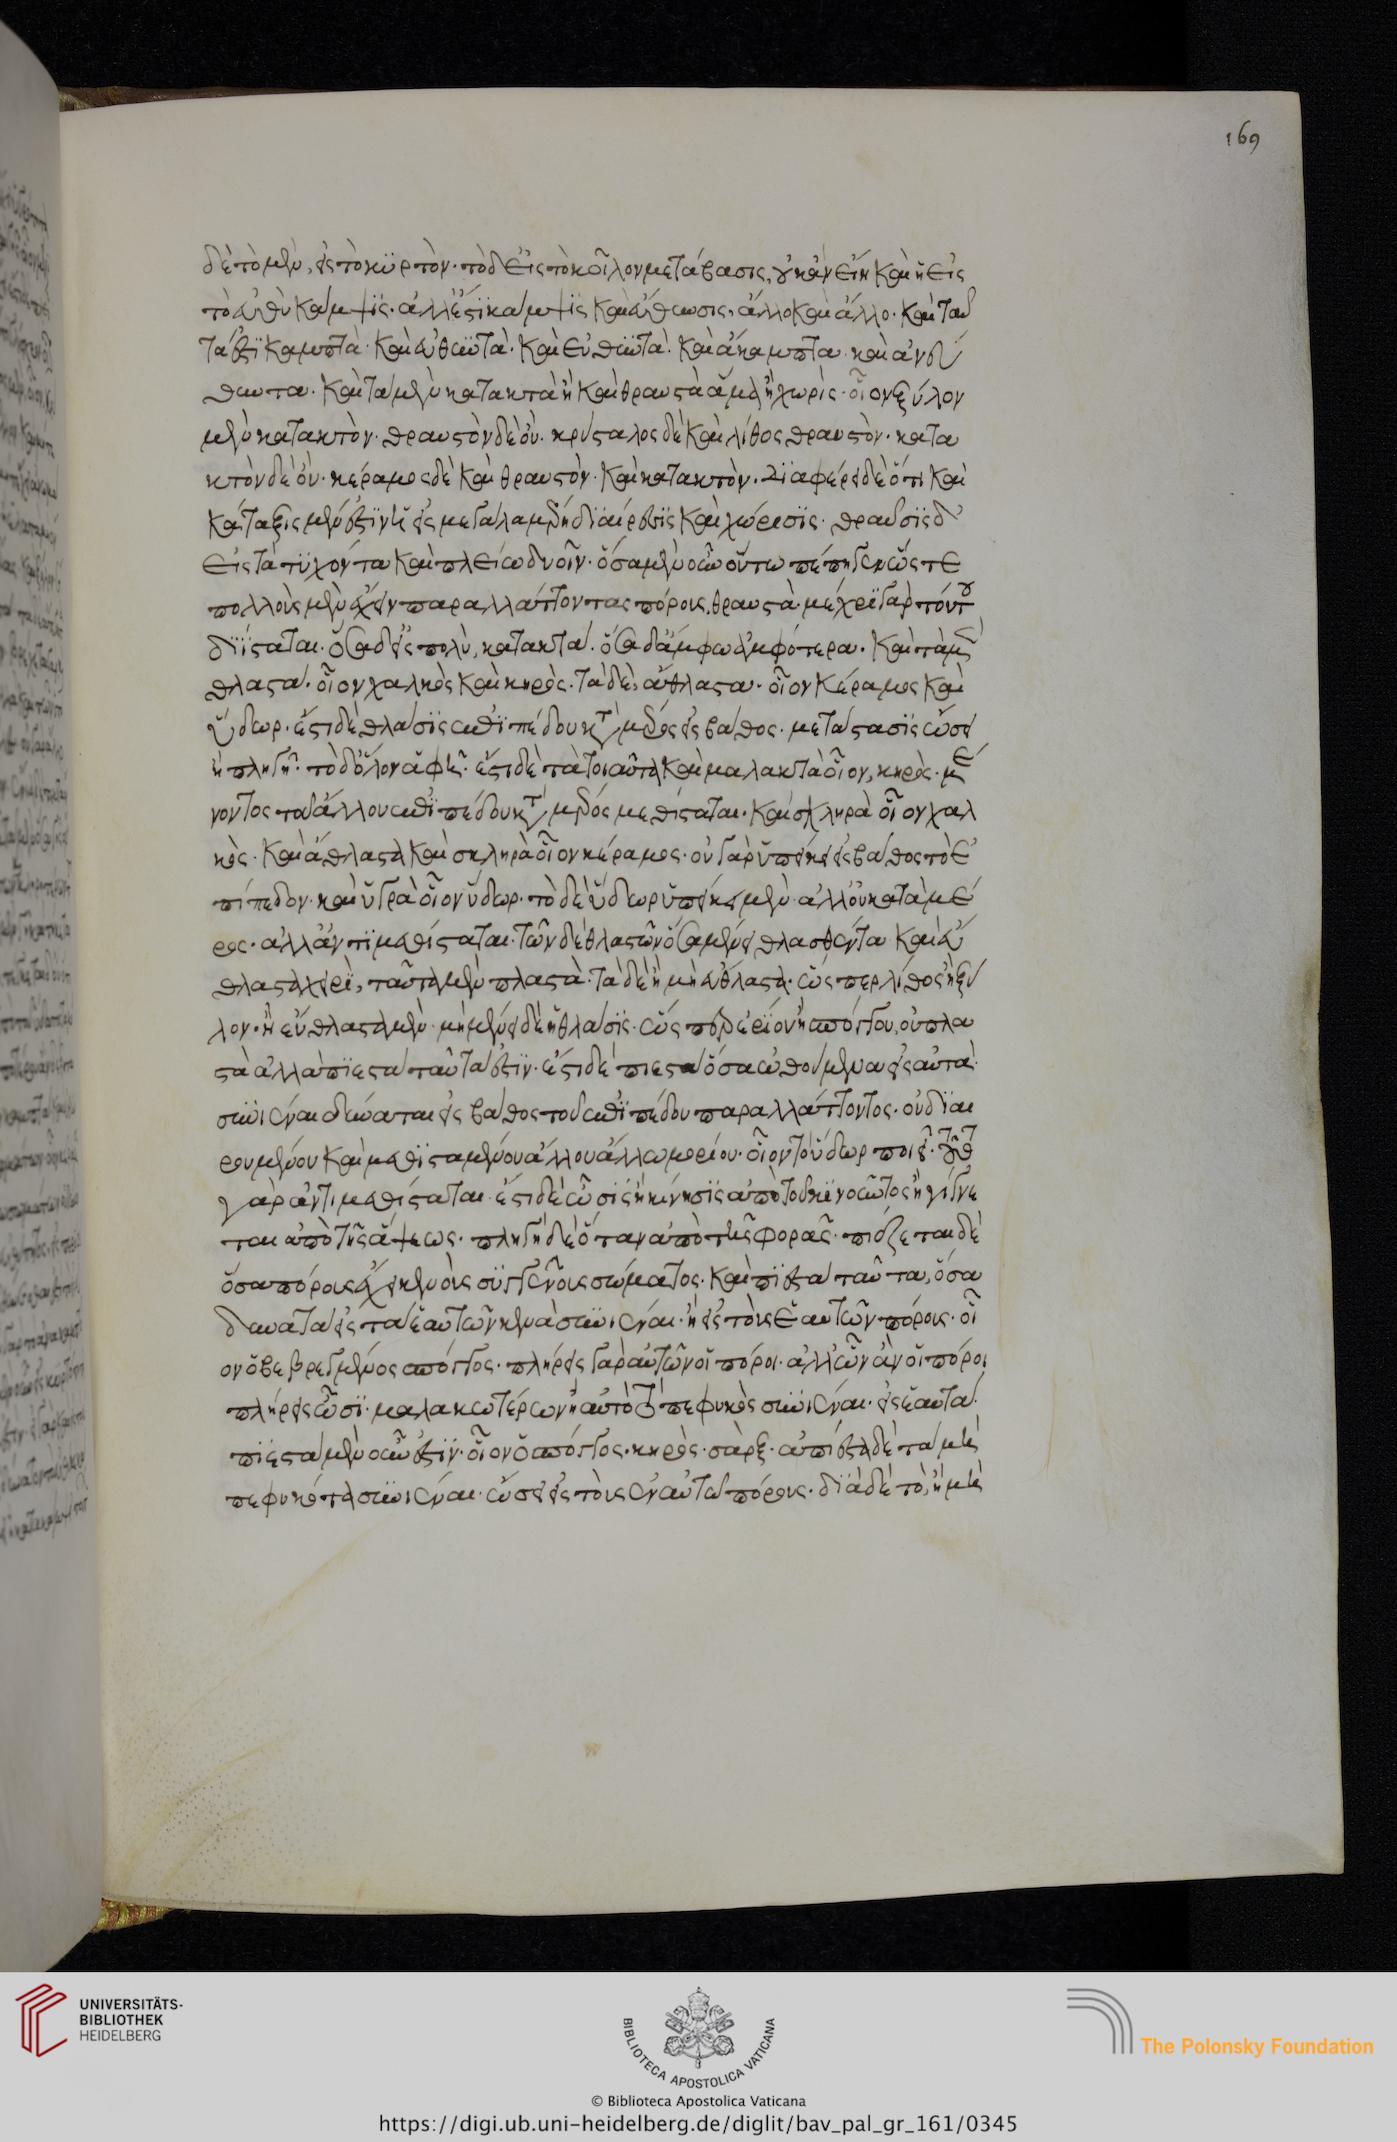 169
δὲ τὸ μὲν, εἰς τὸ κυρτὸν· τὸ δ εἰς τὸ κοῖλον μετάβασις, οὐκ ἂν εἴη καὶ ἡ εἰς
τὸ εὐθὺ κάμψις· ἀλλ ἔστι κάμψις καὶ εὔθυνσις, ἄλλο καὶ ἄλλο· καὶ ταῦ
τά ἐστι καμπτὰ· καὶ εὐθυντὰ· καὶ ἄκαμπτα καὶ ἀνεύ
θυντα· καὶ τὰ μὲν κατακτὰ ἢ καὶ θραυστὰ ἅμα ἢ χωρὶς· οἷον ξύλον
μὲν κατακτὸν· θραυστὸν δὲ οὔ· κρύσταλος δὲ καὶ λίθος θραυστὸν· κατα
κτὸν δὲ οὔ· κέραμος δὲ καὶ θραυστὸν· καὶ κατακτὸν· διαφέρει δὲ ὅτι καὶ
κάταξις μέν ἐστιν ἡ εἰς μεγάλα μέρη διαίρεσις καὶ χώρισις· θραῦσις δ
εἰς τὰ τυχόντα καὶ πλείω δυοῖν· ὅσα μὲν οὖν οὕτω πέπηγεν ὥστε
πολλοὺς μὲν ἔχειν παραλλάττοντας πόρους, θραυστὰ· μέχρι γὰρ τούτου
διίσταται· ὅσα δ εἰς πολὺ, κατακτά· ὅσα δ ἄμφω ἀμφότερα· καὶ τὰ μὲν
θλαστά· οἷον χαλκὸς καὶ κηρὸς· τὰ δὲ, ἄθλαστα· οἷον κέραμος καὶ
ὕδωρ· ἔστι δὲ θλάσις ἐπιπέδου κατὰ μέρος εἰς βάθος· μετάστασις ὤσει
ἢ πληγῇ· τὸ δ ὅλον ἁφῇ· ἔστι δὲ τὰ τοιαῦτα καὶ μαλακτὰ οἷον, κηρὸς· μέ
νοντος τοῦ ἄλλου ἐπιπέδου κατὰ μέρος μεθίσταται· καὶ σκληρὰ οἷον χαλ
κὸς· καὶ ἄθλαστα καὶ σκληρὰ οἷον κέραμος· οὐ γὰρ ὑπείκει εἰς βάθος τὸ ἐ
πίπεδον· καὶ ὑγρὰ οἷον ὕδωρ· τὸ δὲ ὕδωρ ὑπείκει μὲν ἀλλ οὐ κατὰ μέ
ρος· ἀλλ ἀντιμεθίσταται· τῶν δὲ θλαστῶν ὅσα μένει θλασθέντα καὶ εὔ
θλαστα χειρὶ, ταῦτα μὲν πλαστὰ· τὰ δὲ ἢ μὴ εὔθλαστα· ὥσπερ λίθος ἢ ξύ
λον· ἢ εὔθλαστα μὲν· μὴ μένει δὲ ἡ θλάσις· ὥσπερ ἐρίου ἢ σπόγγου, οὐ πλα
στὰ ἀλλὰ πιεστά ταῦτά ἐστιν· ἔστι δὲ πιεστά ὅσα ὠθούμενα εἰς αὑτὰ
συνιέναι δύναται εἰς βάθος τοῦ ἐπιπέδου παραλλάττοντος· οὐ διαι
ρουμένου καὶ μεθισταμένου ἄλλου ἄλλω μορίου· οἷον τὸ ὕδωρ ποιεῖ· τοῦτο
γὰρ ἀντιμεθίσταται· ἔστι δὲ ὦσις ἡ κίνησις ἀπὸ τοῦ κινοῦντος ἢ γίγνε
ται ἀπὸ τῆς ἅψεως· πληγὴ δὲ ὅταν ἀπὸ τῆς φορᾶς· πιέζεται δὲ
ὅσα πόρους ἔχει κενοὺς συγγενοῦς σώματος· καὶ πιεστά ταῦτα, ὅσα
δύναται εἰς τὰ ἑαυτῶν κενὰ συνιέναι· ἢ εἰς τοὺς ἑαυτῶν πόρους· οἷ
ον ὁ βεβρεγμένος σπόγγος· πλήρεις γὰρ αὐτῶν οἱ πόροι· ἀλλ ὧν ἂν οἱ πόροι
πλήρεις ὦσι· μαλακωτέρων ἢ αὐτὸ τὸ πεφυκὸς συνιέναι· εἰς ἑαυτά·
πιεστὰ μὲν οὖν ἐστιν· οἷον σπόγγος· κηρὸς· σὰρξ· ἀπίεστα δὲ τὰ μὴ
πεφυκότα συνιέναι· ὤσει εἰς τοὺς ἐν αὐτῶ πόρους· διὰ δὲ τὸ, ἢ μὴ
UNIVERSITÄTS-
BIBLIOTHEK
HEIDELBERG
BIBLIOTECA APOSTOLICA VATICANA
The Polonsky Foundation
© Biblioteca Apostolica Vaticana
https://digi.ub.uni-heidelberg.de/diglit/bav_pal_gr_161/0345